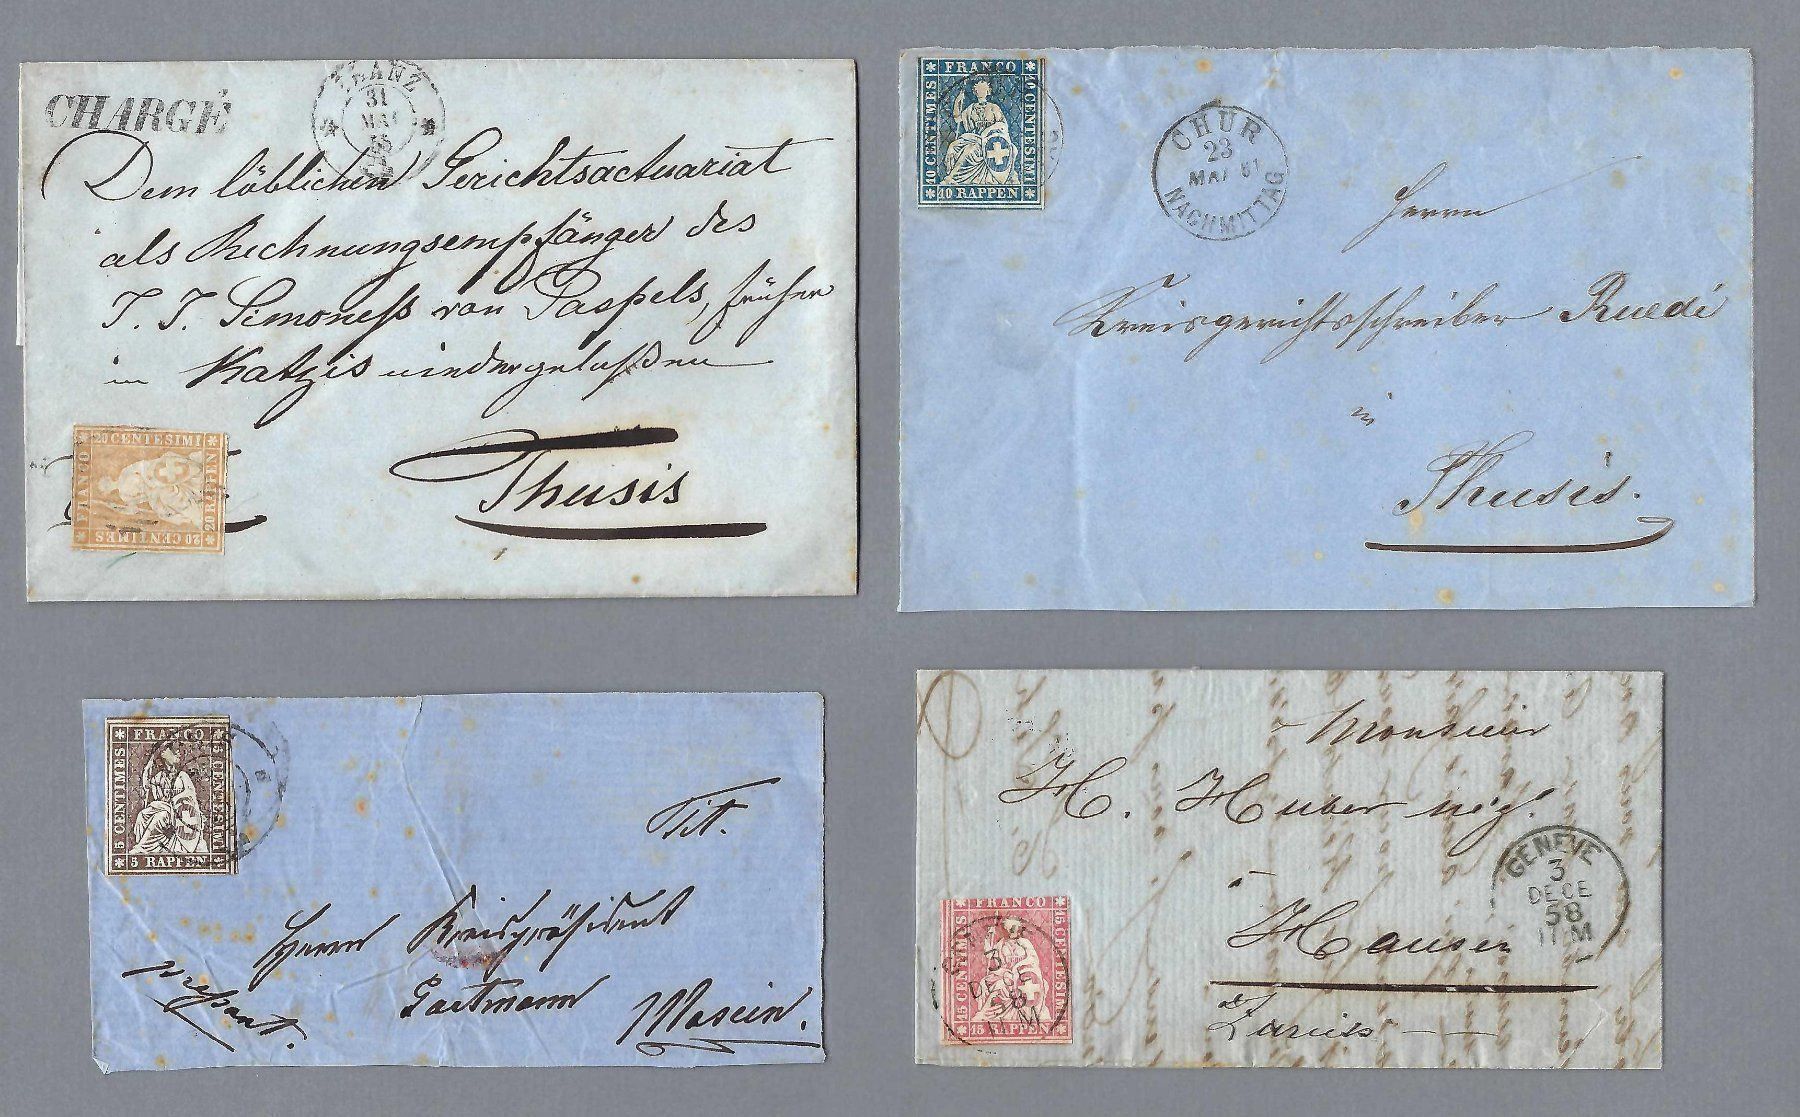 CHARGÉ
ILANZ
31
MAI
Dem löblichen Gerichtsactuariat
als Rechnungsempfänger des
J. J. Simoness von Paspels, früher
in Katzis niedergelaßen
Thusis
20 CENTESIMI
FRANCO
20 RAPPEN
20 CENTIMES
FRANCO
10 CENTIMES
10 CENTESIMI
10 RAPPEN
CHUR
23
MAI 61
NACHMITTAG
Herrn
Kreisgerichtsschreiber Ruedi
in
Thusis.
FRANCO
5 CENTIMES
5 CENTESIMI
5 RAPPEN
Tit.
Herrn Kreispräsident
pressant.
Masein.
Monsieur
H. Huber
à
Hausen
GENEVE
3
DECE
58
11 M
FRANCO
15 CENTIMES
15 CENTESIMI
15 RAPPEN
3
DECE
58
11 M